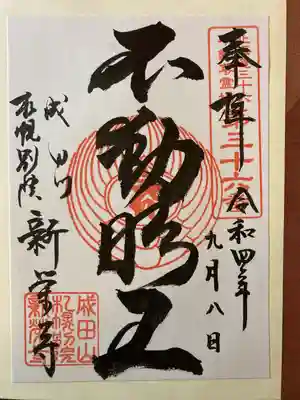 奉拝
令和四年
九月八日
不動明王
成田山
札幌別院
新栄寺
成田山
札幌別院
新栄寺